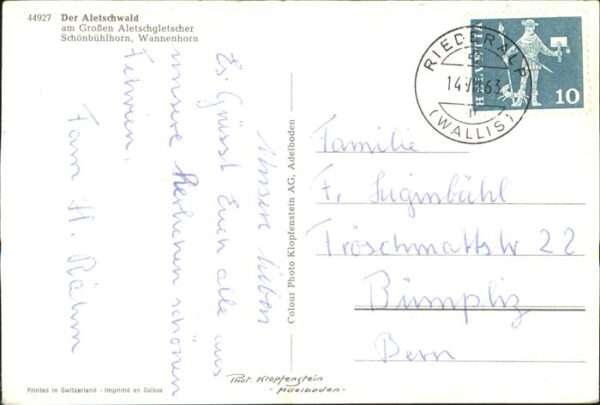 44927 Der Aletschwald
am Großen Aletschgletscher
Schönbühlhorn, Wannenhorn
Unsere lieben
Es Grüsst Euch alle aus
unsere schönen
Ferien.
Fam H. Röhm
Colour Photo Klopfenstein AG, Adelboden
RIEDERALP
(WALLIS)
HELVETIA
10
Familie
F. Suginbühl
Tröschmattstr 22
Bümpliz
Bern
Printed in Switzerland - Imprimé en Suisse
Phot. Klopfenstein
- Adelboden -